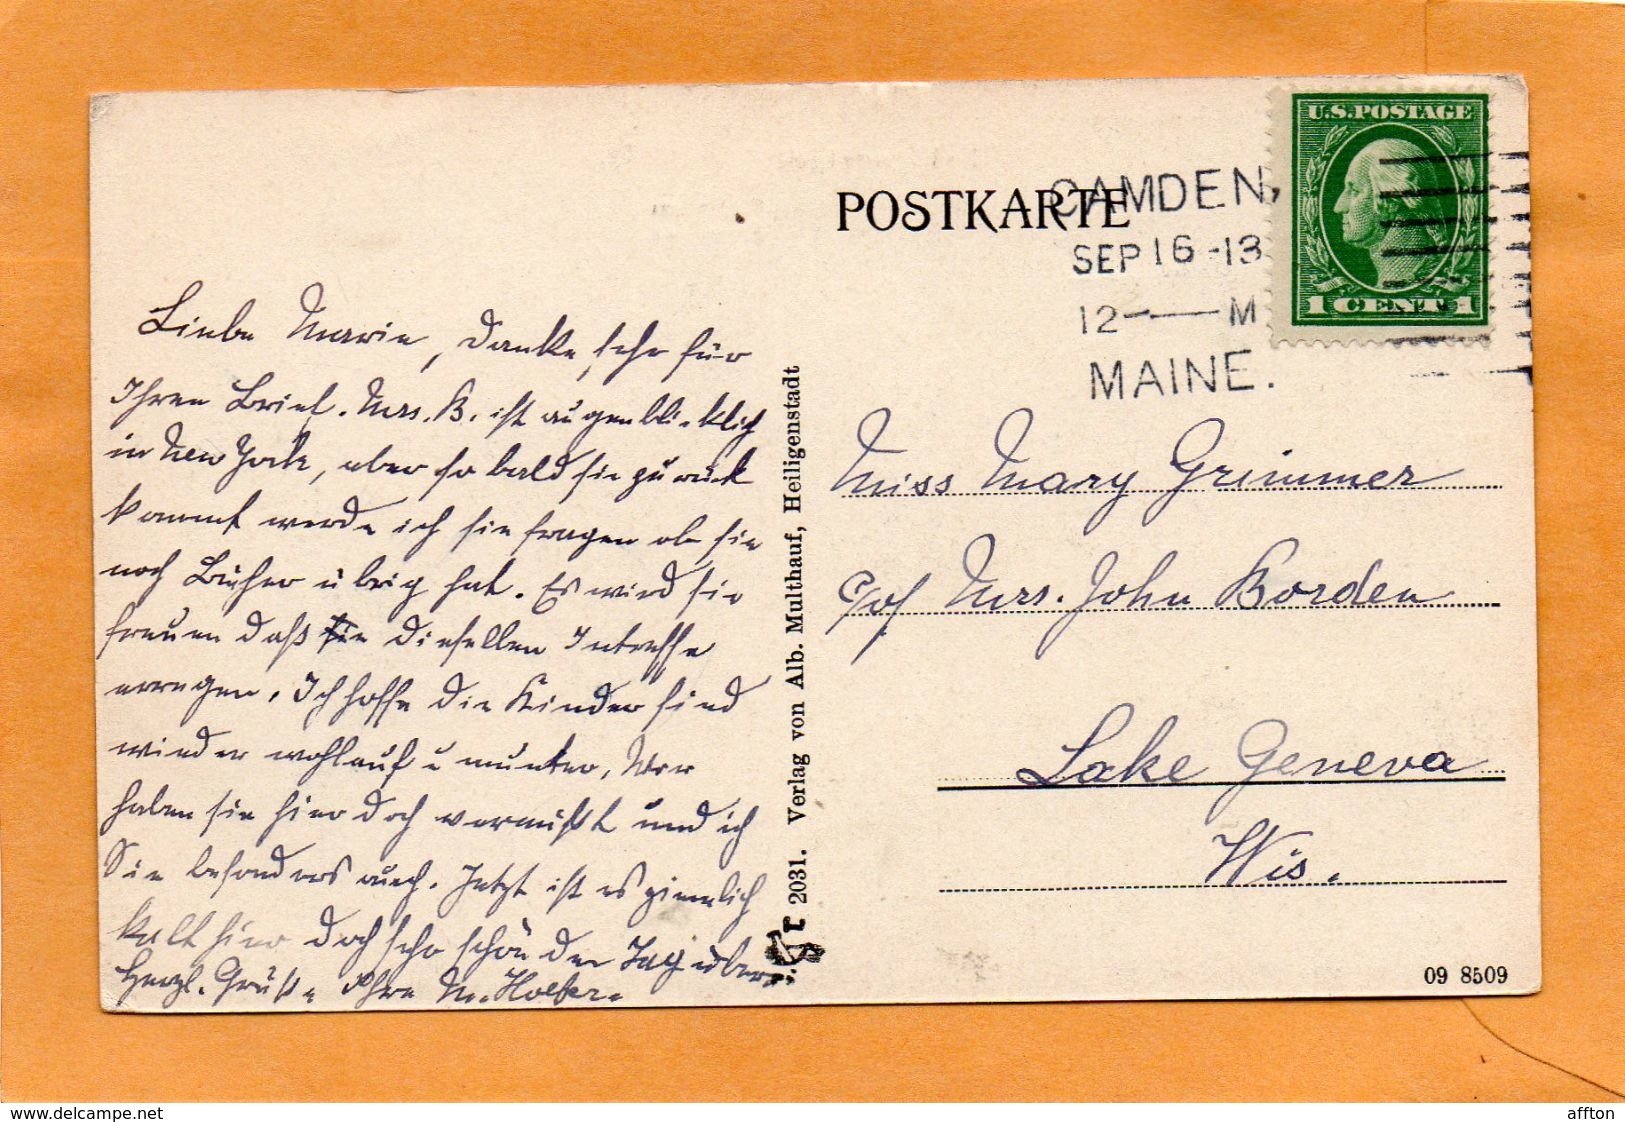 U.S. POSTAGE
1 CENT 1
POSTKARTE
CAMDEN,
SEP 16 -13
12 — M
MAINE.
Liebe Marie, Danke sehr für
Ihren Brief. Mrs. B. ist augenblicklich
in New York, aber so bald sie zurück
kommt werde ich sie fragen ob sie
noch Bücher übrig hat. Es wird sie
freuen daß sie dieselben Intresse
erregen. Ich hoffe die Kinder sind
wieder wohlauf u munter, Wir
haben sie hier doch vermißt und ich
Sie besonders auch. Jetzt ist es ziemlich
kalt hier doch sehr schön den Tag über.
Herzl. Grüße Ihre M. Hoefer.
2031. Verlag von Alb. Multhauf, Heiligenstadt
Miss Mary Grimmer
c/o/ Mrs. John Borden
Lake Geneva
Wis.
09 8509
www.delcampe.net
affton